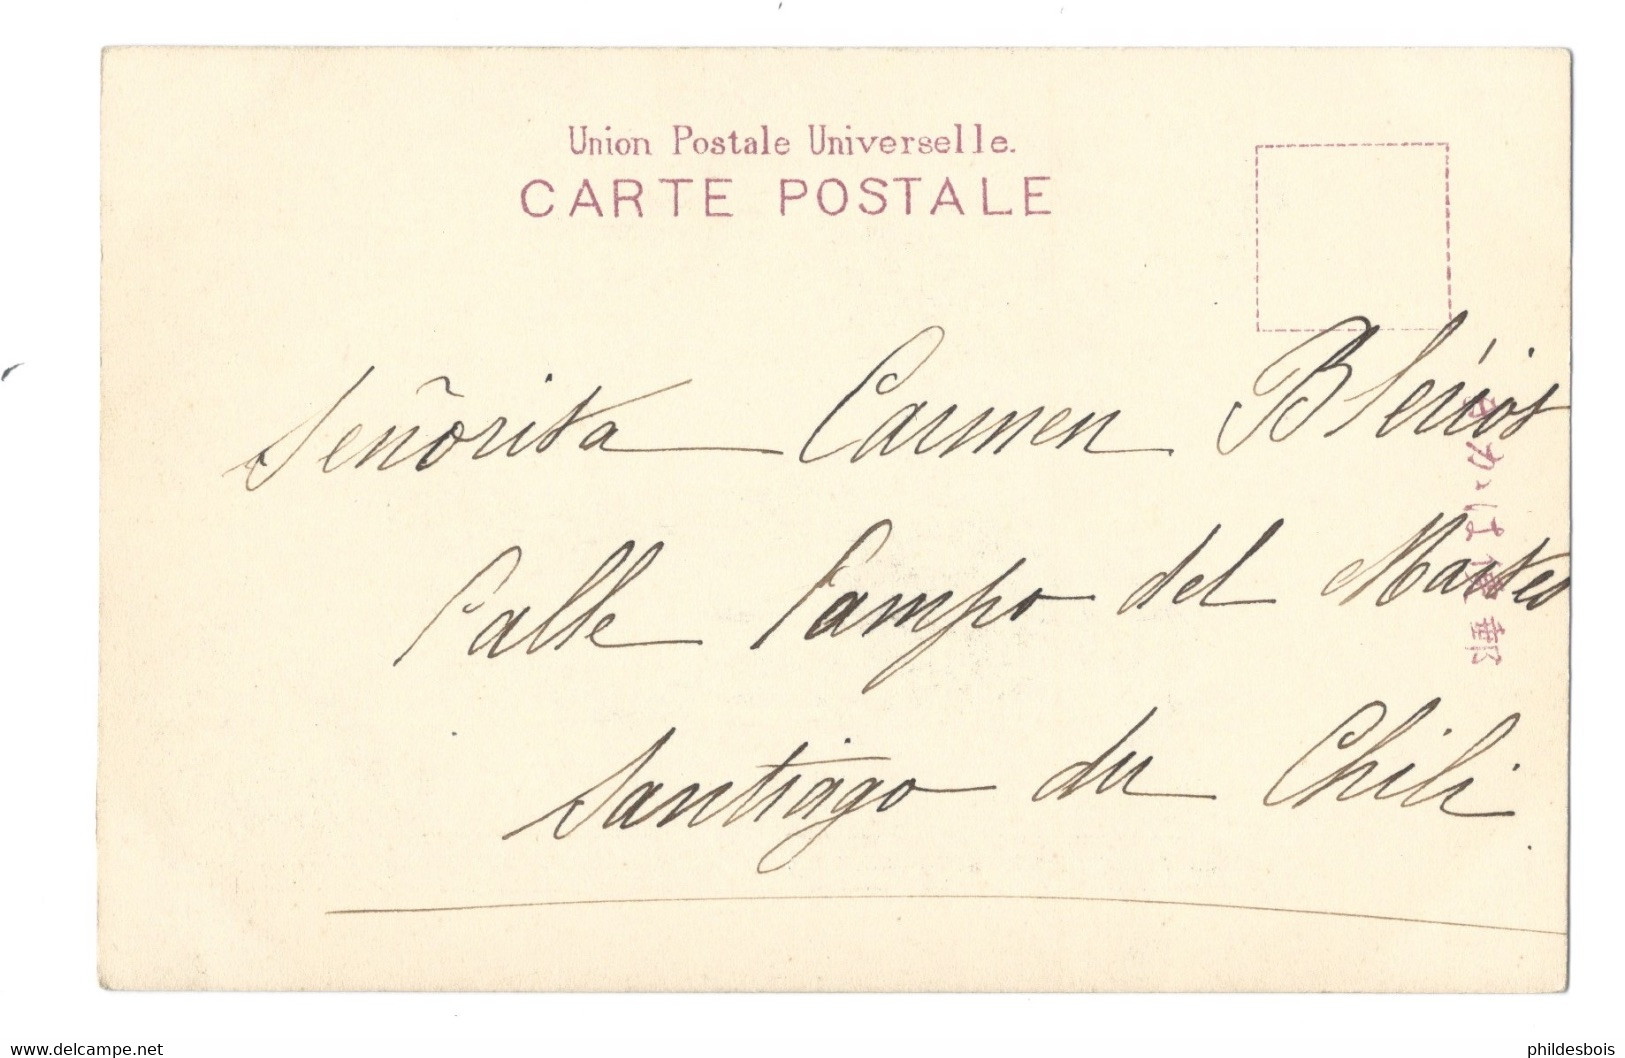 Union Postale Universelle.
CARTE POSTALE
Señorita Carmen
Calle Campo del Marte
Santiago du Chili
郵便はがき
www.delcampe.net
phildesbois